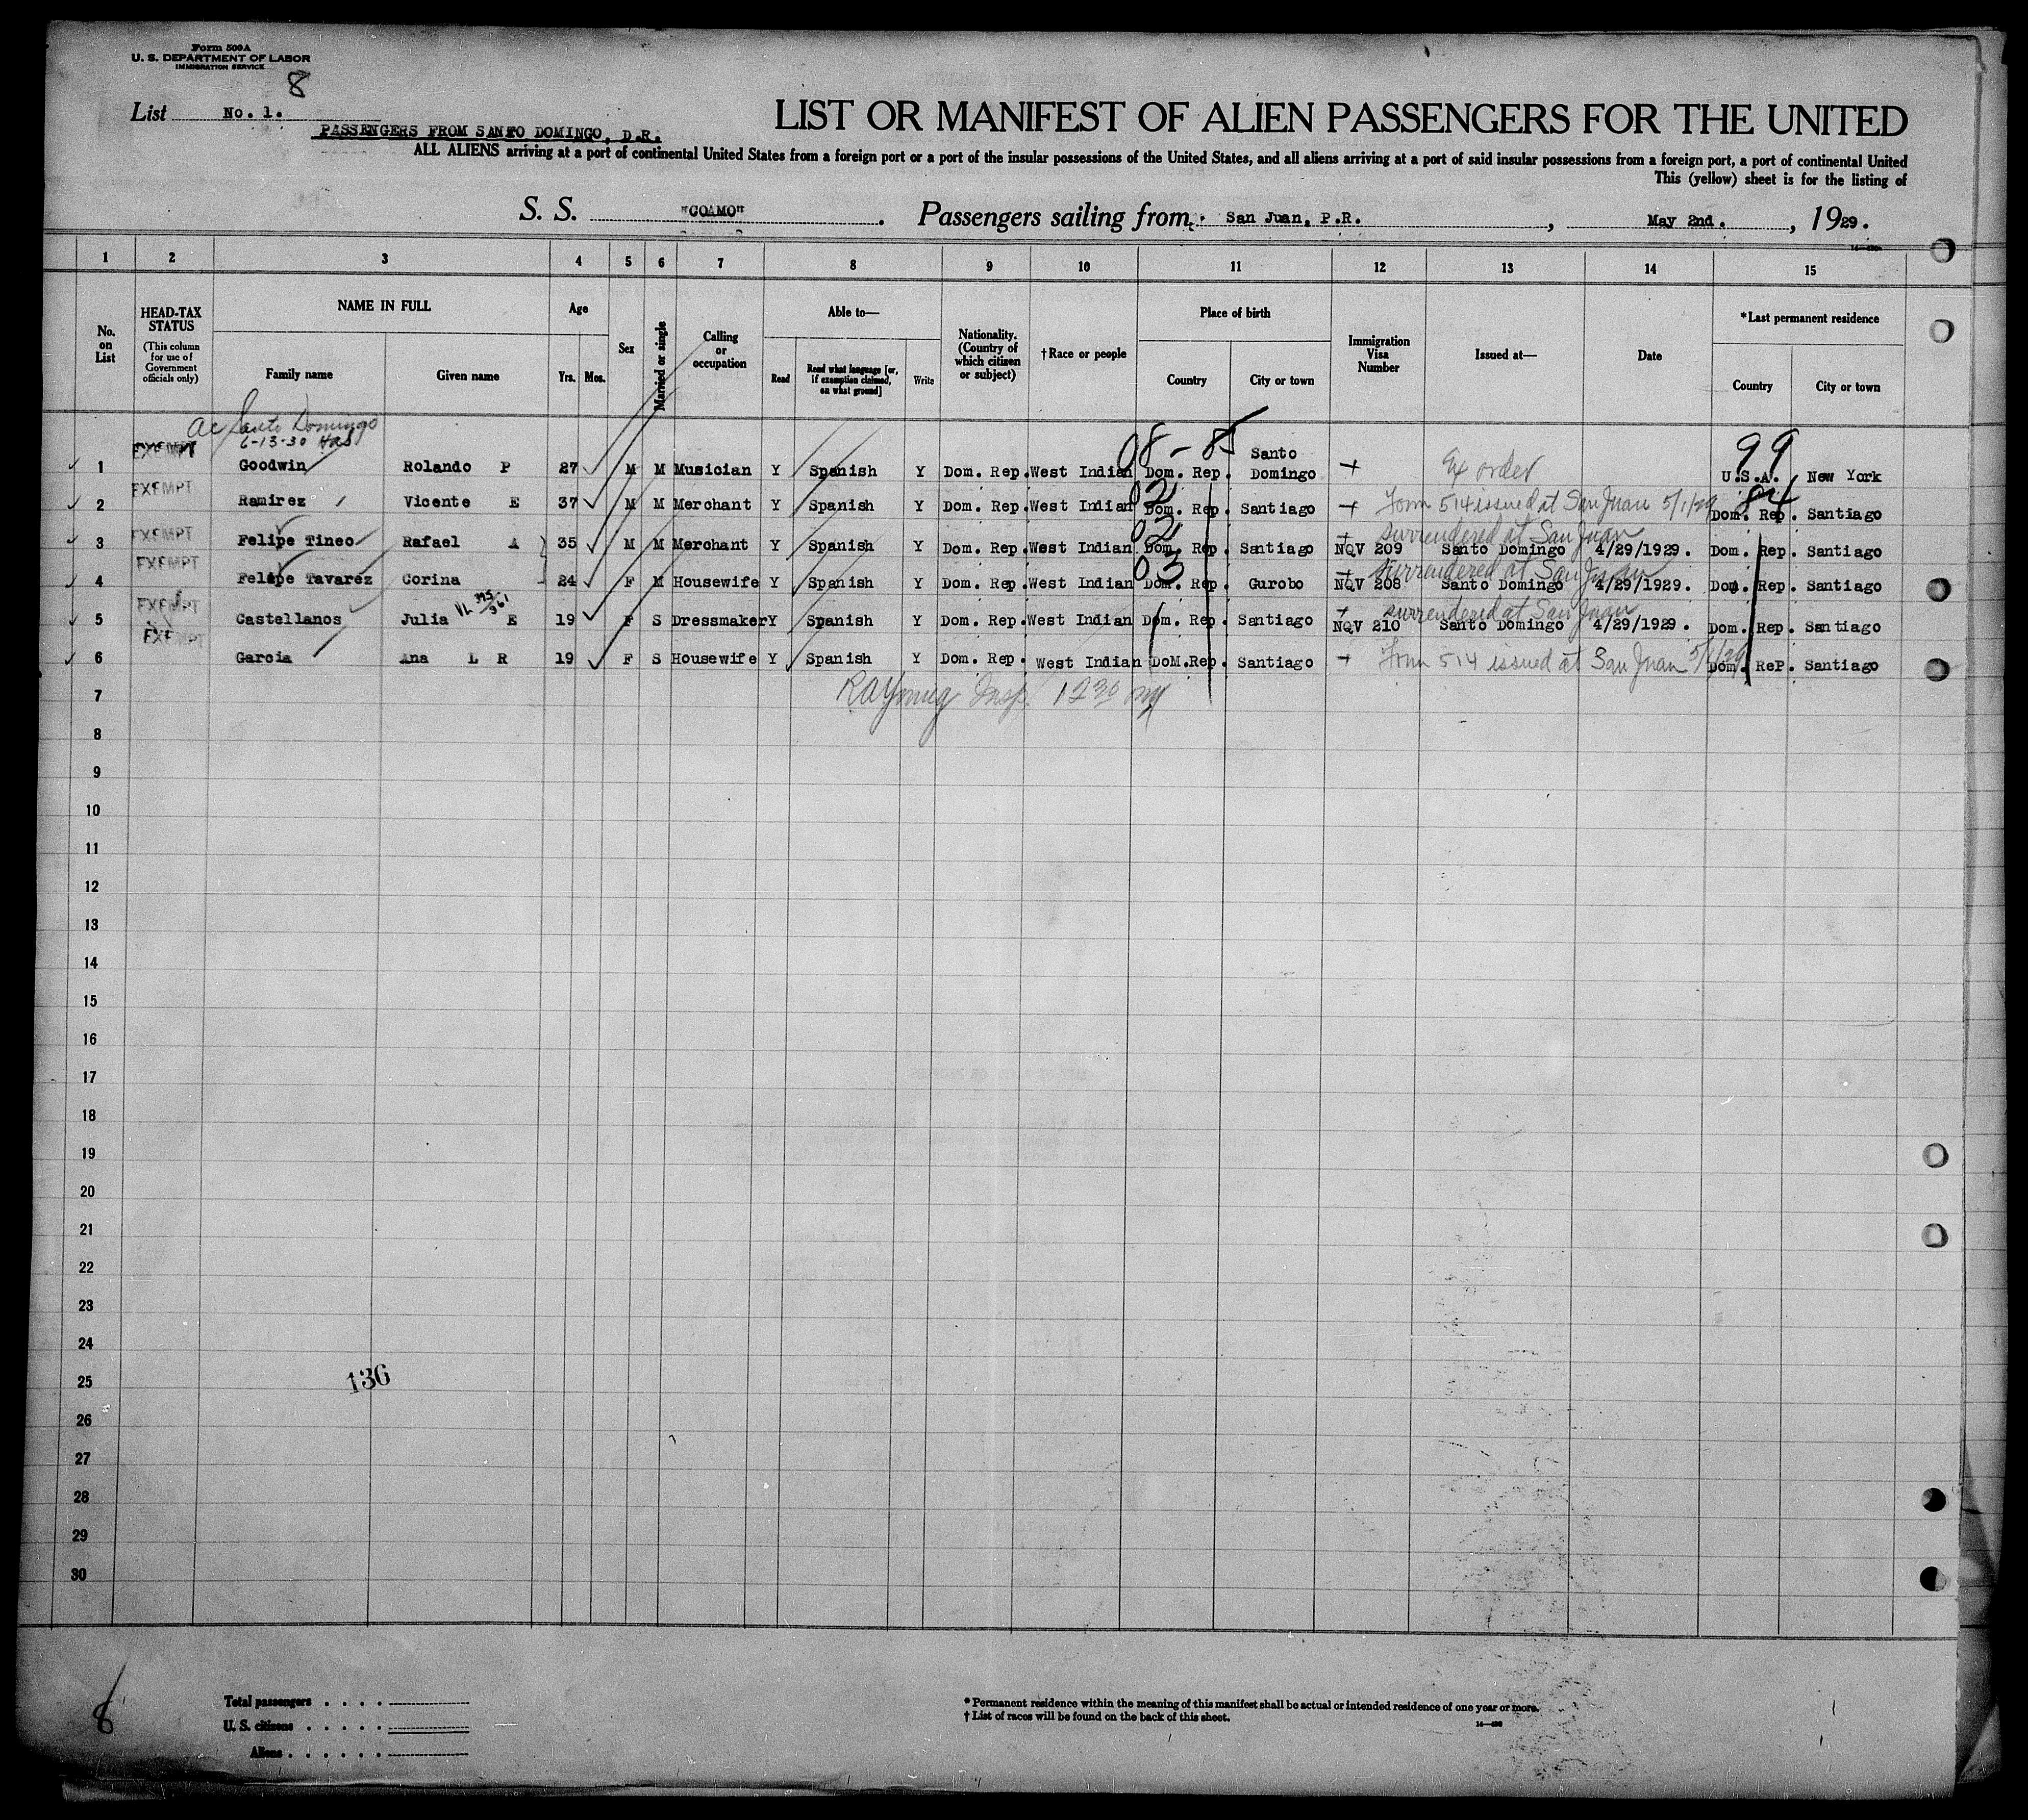 Form 500A
U. S. DEPARTMENT OF LABOR
IMMIGRATION SERVICE
8
List No. 1.
LIST OR MANIFEST OF ALIEN PASSENGERS FOR THE UNITED
PASSENGERS FROM SANTO DOMINGO, D.R.
ALL ALIENS arriving at a port of continental United States from a foreign port or a port of the insular possessions of the United States, and all aliens arriving at a port of said insular possessions from a foreign port, a port of continental United
This (yellow) sheet is for the listing of
S. S. "COAMO". Passengers sailing from San Juan, P.R., May 2nd., 1929.
1 2 3 4 5 6 7 8 9 10 11 12 13 14 15
No. on List
HEAD-TAX STATUS
(This column for use of Government officials only)
NAME IN FULL
Family name Given name
Age
Yrs. Mos.
Sex
Married or single
Calling or occupation
Able to—
Read
Read what language [or, if exemption claimed, on what ground]
Write
Nationality. (Country of which citizen or subject)
†Race or people
Place of birth
Country City or town
Immigration Visa Number
Issued at—
Date
*Last permanent residence
Country City or town
Santo Domingo
6-13-30
08-85
99
EXEMPT
1 Goodwin Rolando P 27 M M Musician Y Spanish Y Dom. Rep. West Indian Dom. Rep. Santo Domingo + Ex order U.S.A. New York
EXEMPT
02
84
2 Ramirez Vicente E 37 M M Merchant Y Spanish Y Dom. Rep. West Indian Dom. Rep. Santiago + Form 514 issued at San Juan 5/1/29 Dom. Rep. Santiago
EXEMPT
02
+ surrendered at San Juan
3 Felipe Tineo Rafael A 35 M M Merchant Y Spanish Y Dom. Rep. West Indian Dom. Rep. Santiago NQV 209 Santo Domingo 4/29/1929. Dom. Rep. Santiago
EXEMPT
03
+ surrendered at San Juan
4 Felipe Tavarez Corina 24 F M Housewife Y Spanish Y Dom. Rep. West Indian Dom. Rep. Gurobo NQV 208 Santo Domingo 4/29/1929. Dom. Rep. Santiago
EXEMPT
+ surrendered at San Juan
5 Castellanos Julia E 19 F S Dressmaker Y Spanish Y Dom. Rep. West Indian Dom. Rep. Santiago NQV 210 Santo Domingo 4/29/1929. Dom. Rep. Santiago
EXEMPT
6 Garcia Ana L R 19 F S Housewife Y Spanish Y Dom. Rep. West Indian DoM.Rep. Santiago + Form 514 issued at San Juan 5/1/29 Dom. ReP. Santiago
7 RAYoung Insp. 1230
8
9
10
11
12
13
14
15
16
17
18
19
20
21
22
23
24
25 136
26
27
28
29
30
Total passengers . . . .
U. S. citizens . . . . .
Aliens . . . . . .
* Permanent residence within the meaning of this manifest shall be actual or intended residence of one year or more.
† List of races will be found on the back of this sheet.